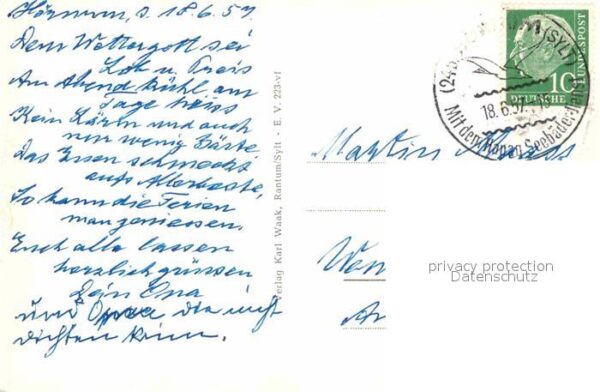 Hörnum, d. 18.6.57
Dem Wettergott sei
Lob u. Preis
Am Abend kühl am
Tage heiss
Kein Lärm und auch
nur wenig Gäste
Das Essen schmeckt
aufs Allerbeste,
So kann die Ferien
man geniessen.
Euch alle lassen
herzlich grüssen
Dein Opa
und Omaa die nicht
dichten kann.
Verlag Karl Waak, Rantum/Sylt - E. V. 223-vf
(SYLT)
18.6.57
Mit dem Kanan Seebäderdienst
10
DEUTSCHE BUNDESPOST
Martin
privacy protection
Datenschutz